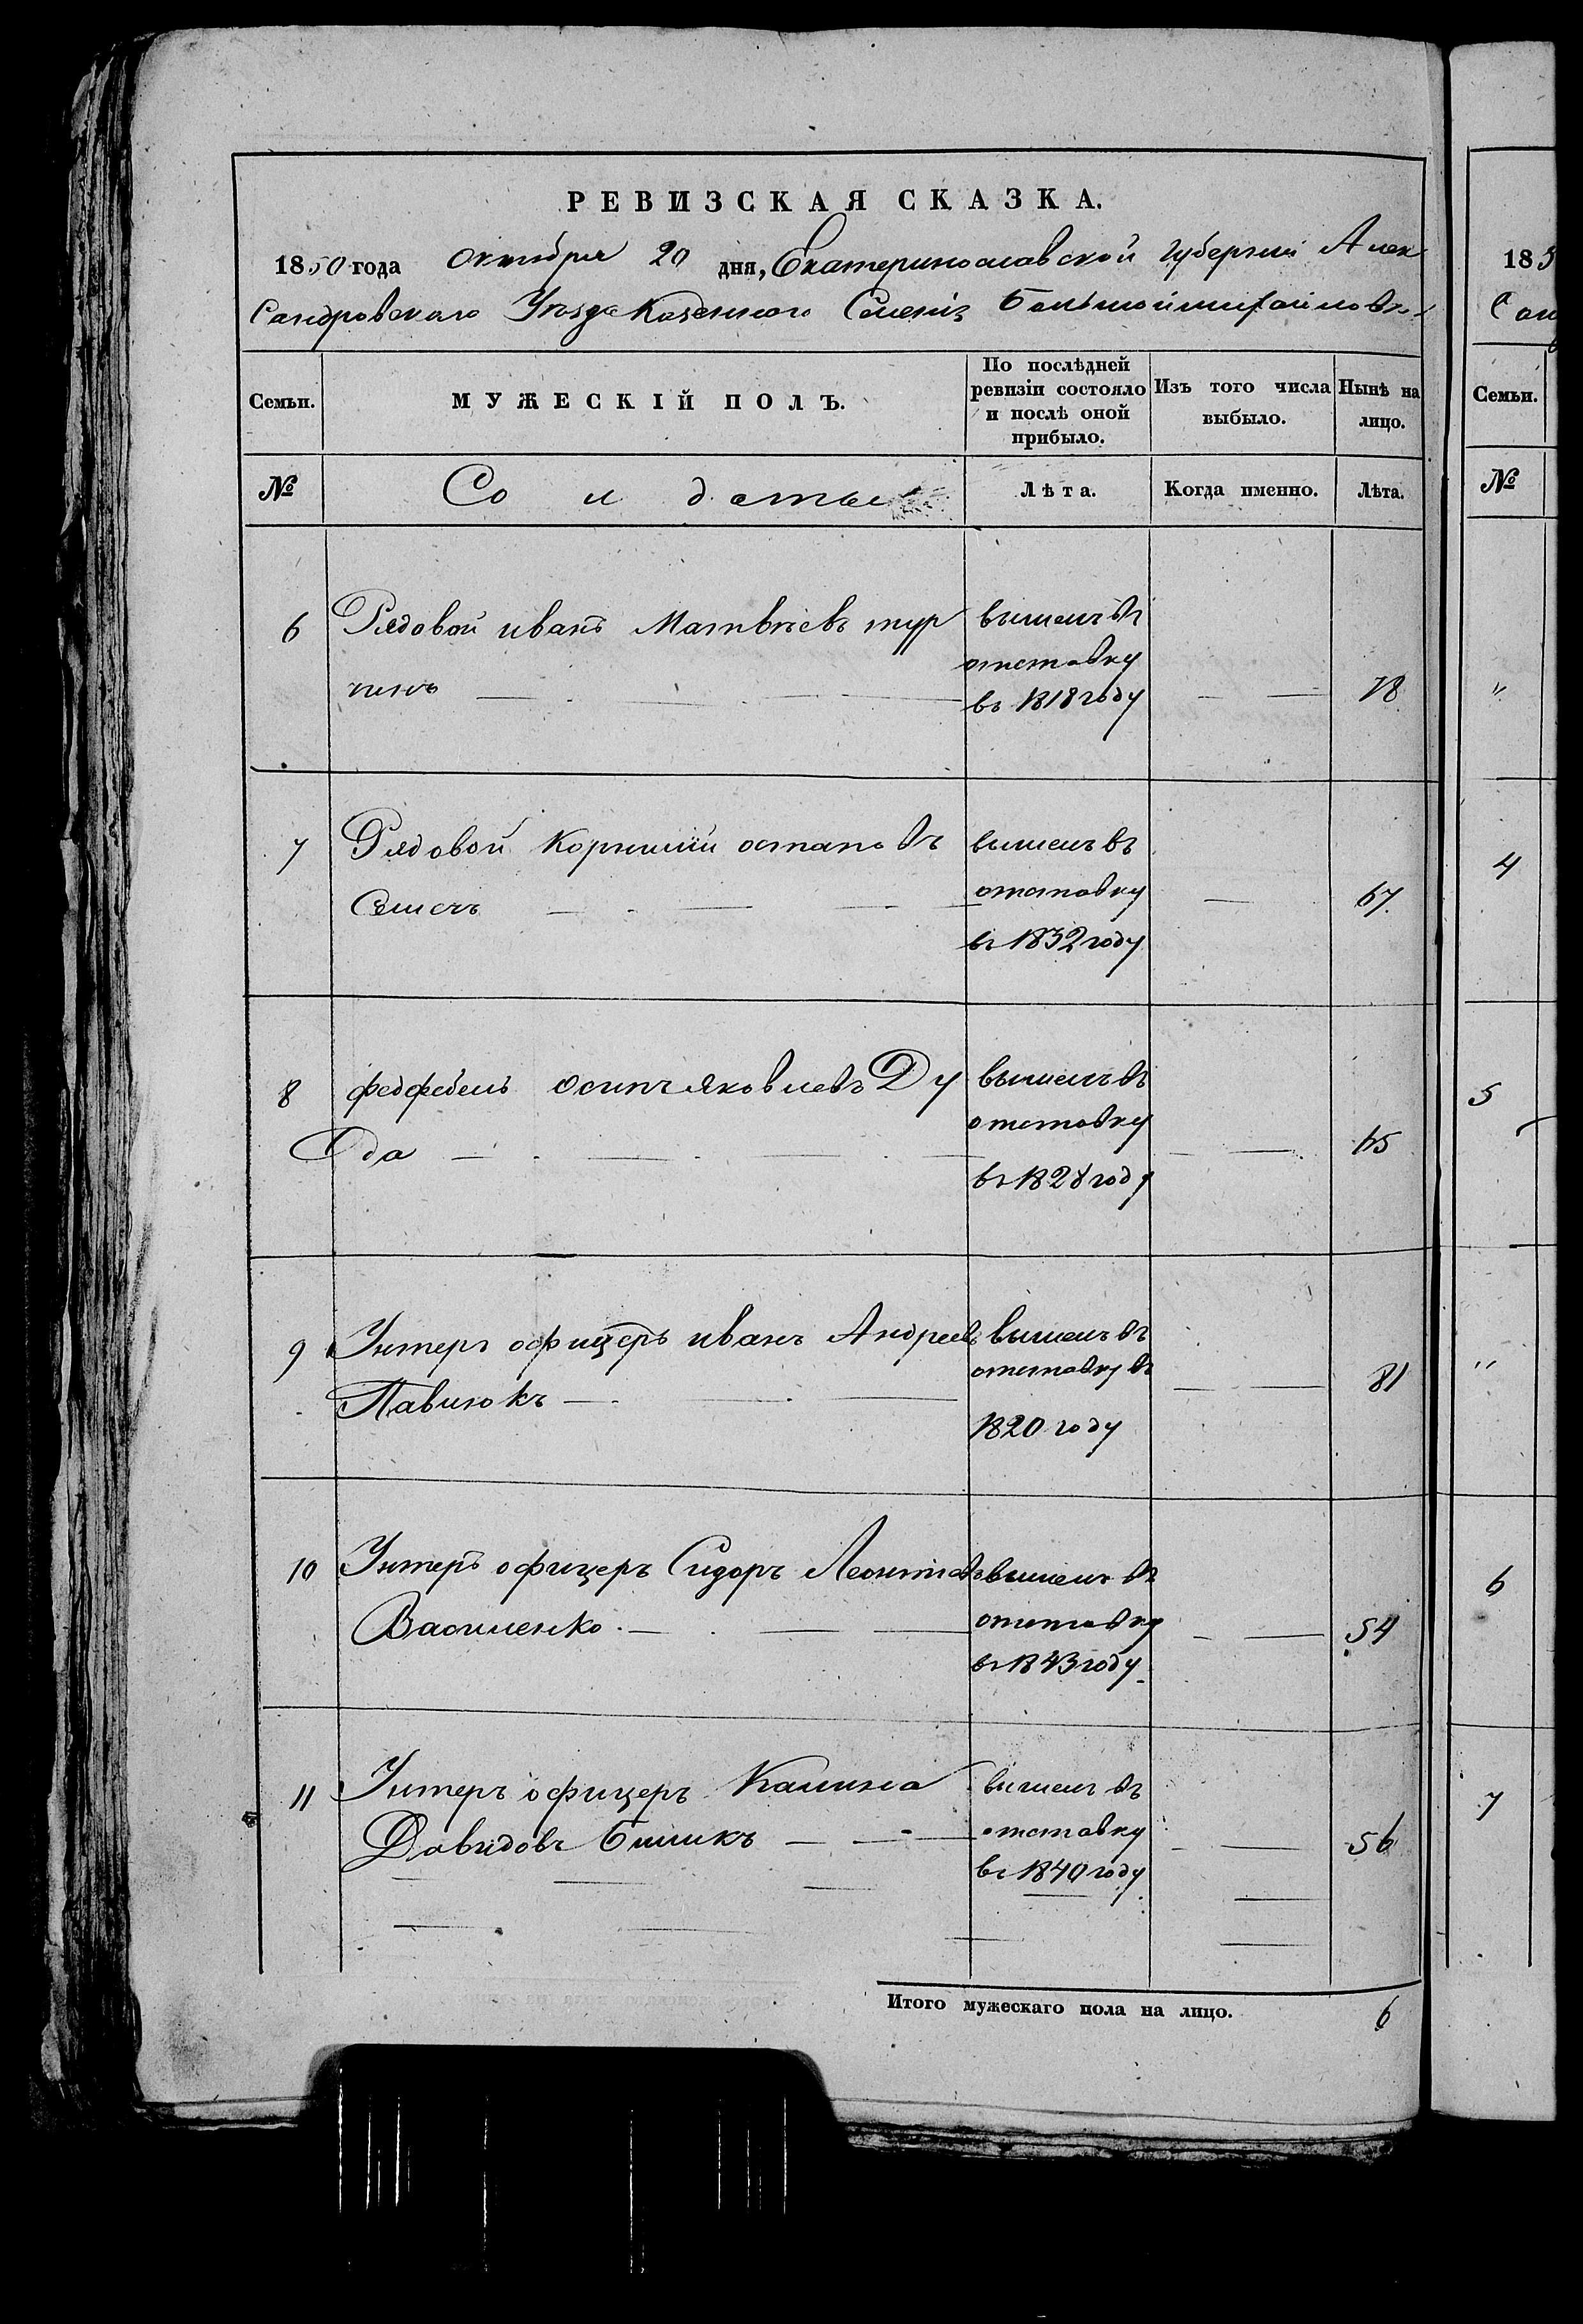 РЕВИЗСКАЯ СКАЗКА.
1850 года октября 20 дня, Екатеринославской губернии Алек
сандровского Уезда Казенного Селенія Большой михайловки
Семьи. МУЖЕСКІЙ ПОЛЪ. По послѣдней ревизіи состояло и послѣ оной прибыло. Изъ того числа выбыло. Нынѣ на лицо.
№ Солдаты Лѣта. Когда именно. Лѣта.
6 Рядовой иванъ Матвѣевъ тур вышелъ въ
отставку
чинъ въ 1818 году 78
7 Рядовой Корнилій остаповъ вышелъ въ
отставку 67
въ 1832 году
8 федфебель осипъ яковлевъ Ду вышелъ въ
отставку
да 65
въ 1828 году
9 Унтеръ офицеръ иванъ Андреевъ вышелъ въ
отставку въ 81
Павлюкъ
1820 году
10 Унтеръ офицеръ Сидоръ Леонтіевъ вышелъ въ
Василенко отставку 54
въ 1843 году
11 Унтеръ офицеръ Калина вышелъ въ
Давидовъ отставку 56
въ 1840 году
Итого мужескаго пола на лицо. 6
185
Сан
Семьи.
№
"
4
5
"
6
7